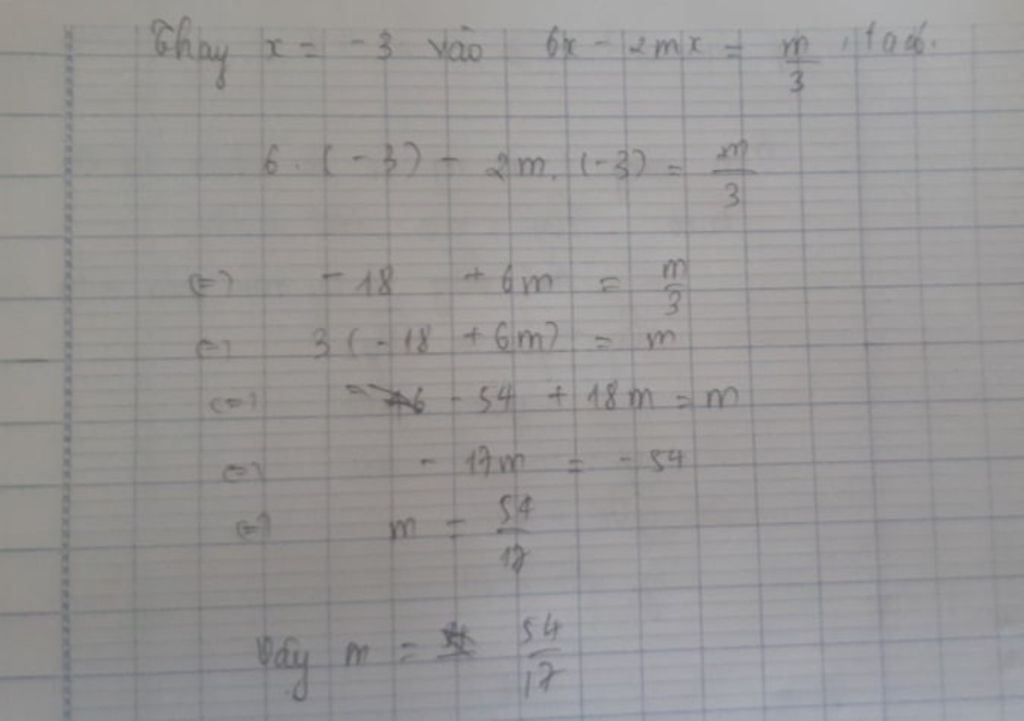 Thay x = -3 vào 6x - 2mx = m/3, ta có.
6. (-3) - 2m. (-3) = m/3
<=> -18 + 6m = m/3
<=> 3(-18 + 6m) = m
<=> -54 + 18m = m
<=> - 17m = -54
<=> m = 54/17
Vậy m = 54/17